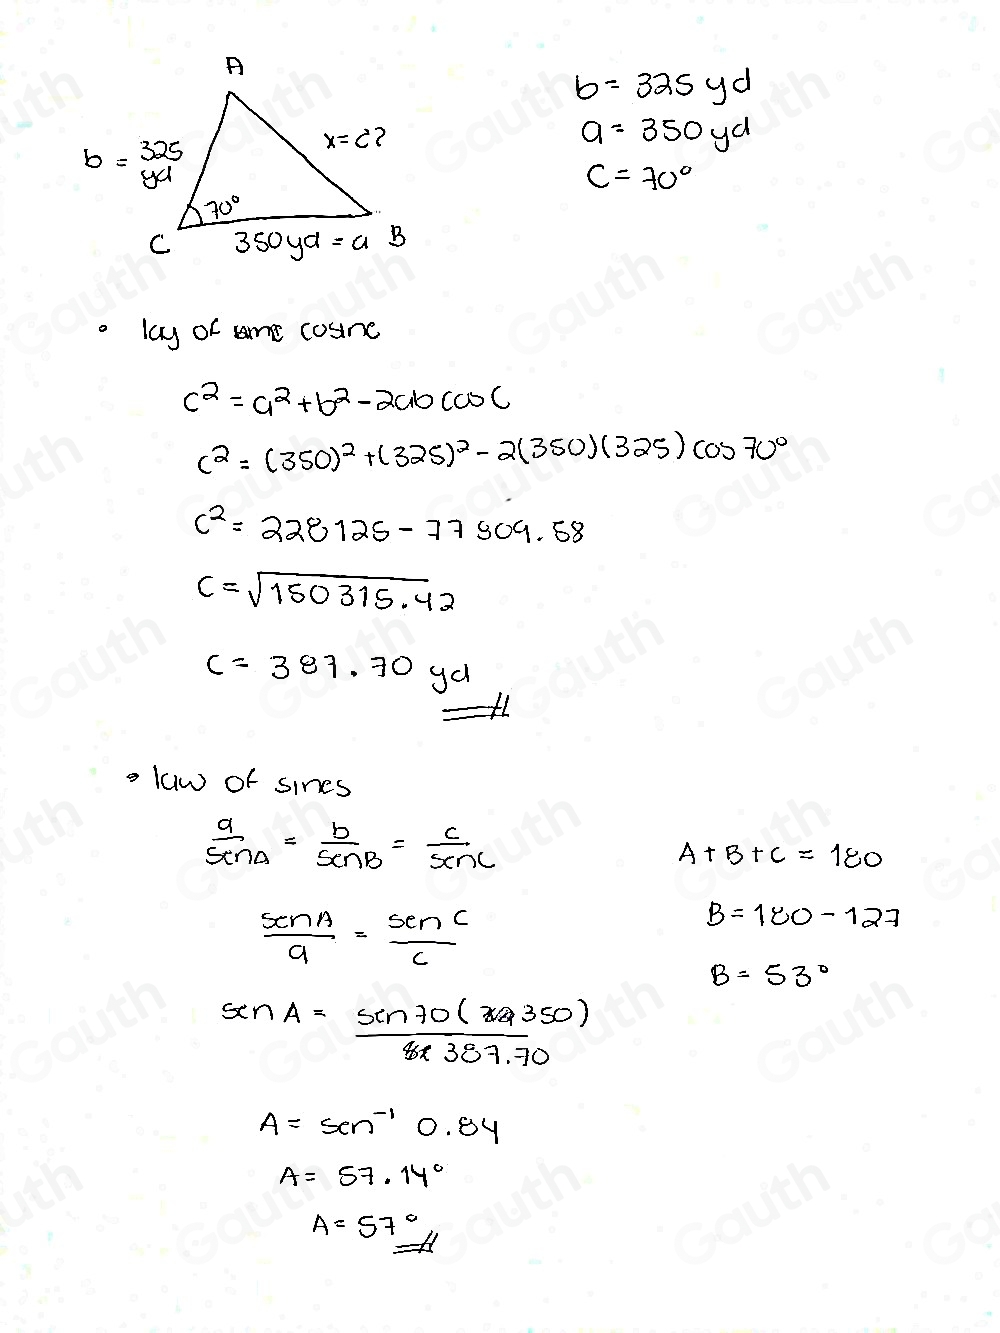 A
b = 325 yd
x=¿?
b = 325 yd
a = 350 yd
C = 70°
70°
C
350yd = a B
• lay of cosine
c² = a² + b² - 2ab cos C
c² = (350)² + (325)² - 2(350)(325) cos 70°
c² = 228125 - 77809.58
C = √150315.42
C = 387.70 yd
• law of sines
a/senA = b/senB = c/senC
A + B + C = 180
senA/a = sen C/c
B = 180 - 127
B = 53°
sen A = sen70 (350)/387.70
A = sen⁻¹ 0.84
A = 57.14°
A = 57°
Gauth